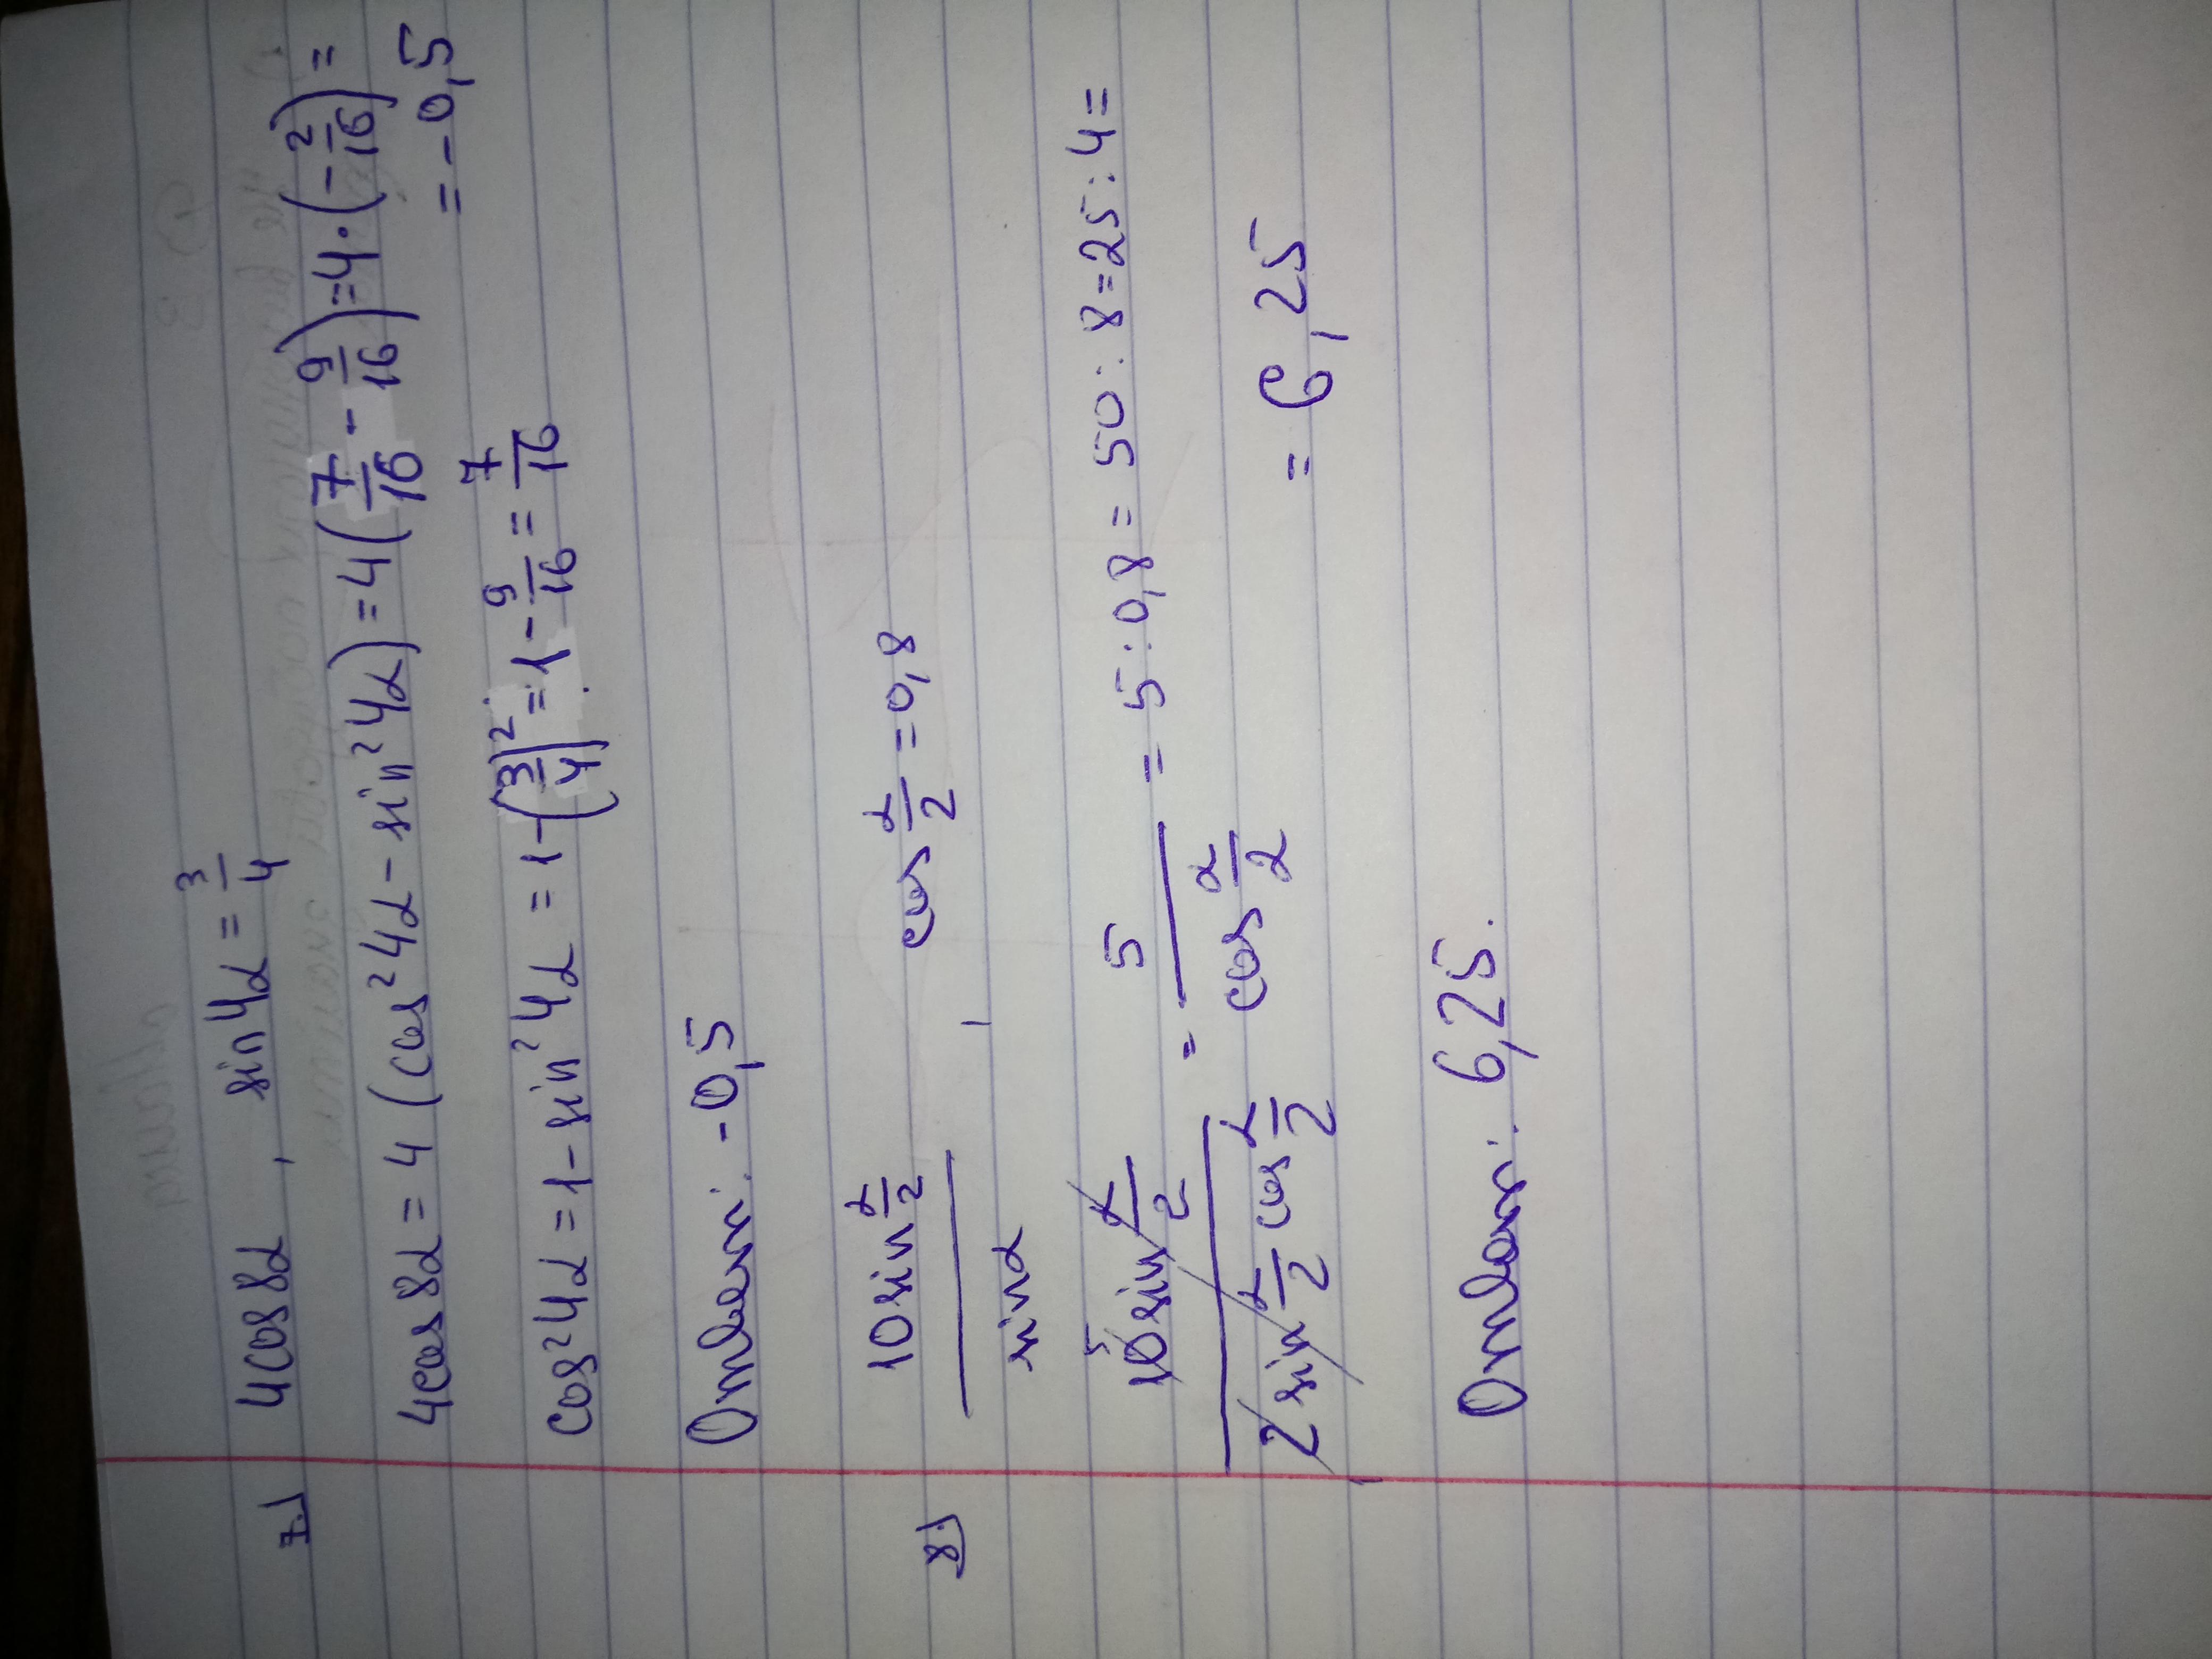 7.) 4cos8α, sin4α = 3/4
4cos8α = 4(cos²4α - sin²4α) = 4(7/16 - 9/16) = 4·(-2/16) =
= -0,5
cos²4α = 1 - sin²4α = 1 - (3/4)² = 1 - 9/16 = 7/16
Ответ: -0,5
8.) 10sin α/2 / sinα, cos α/2 = 0,8
10 sin α/2 / 2 sin α/2 cos α/2 = 5 / cos α/2 = 5:0,8 = 50:8 = 25:4 =
= 6,25
Ответ: 6,25.